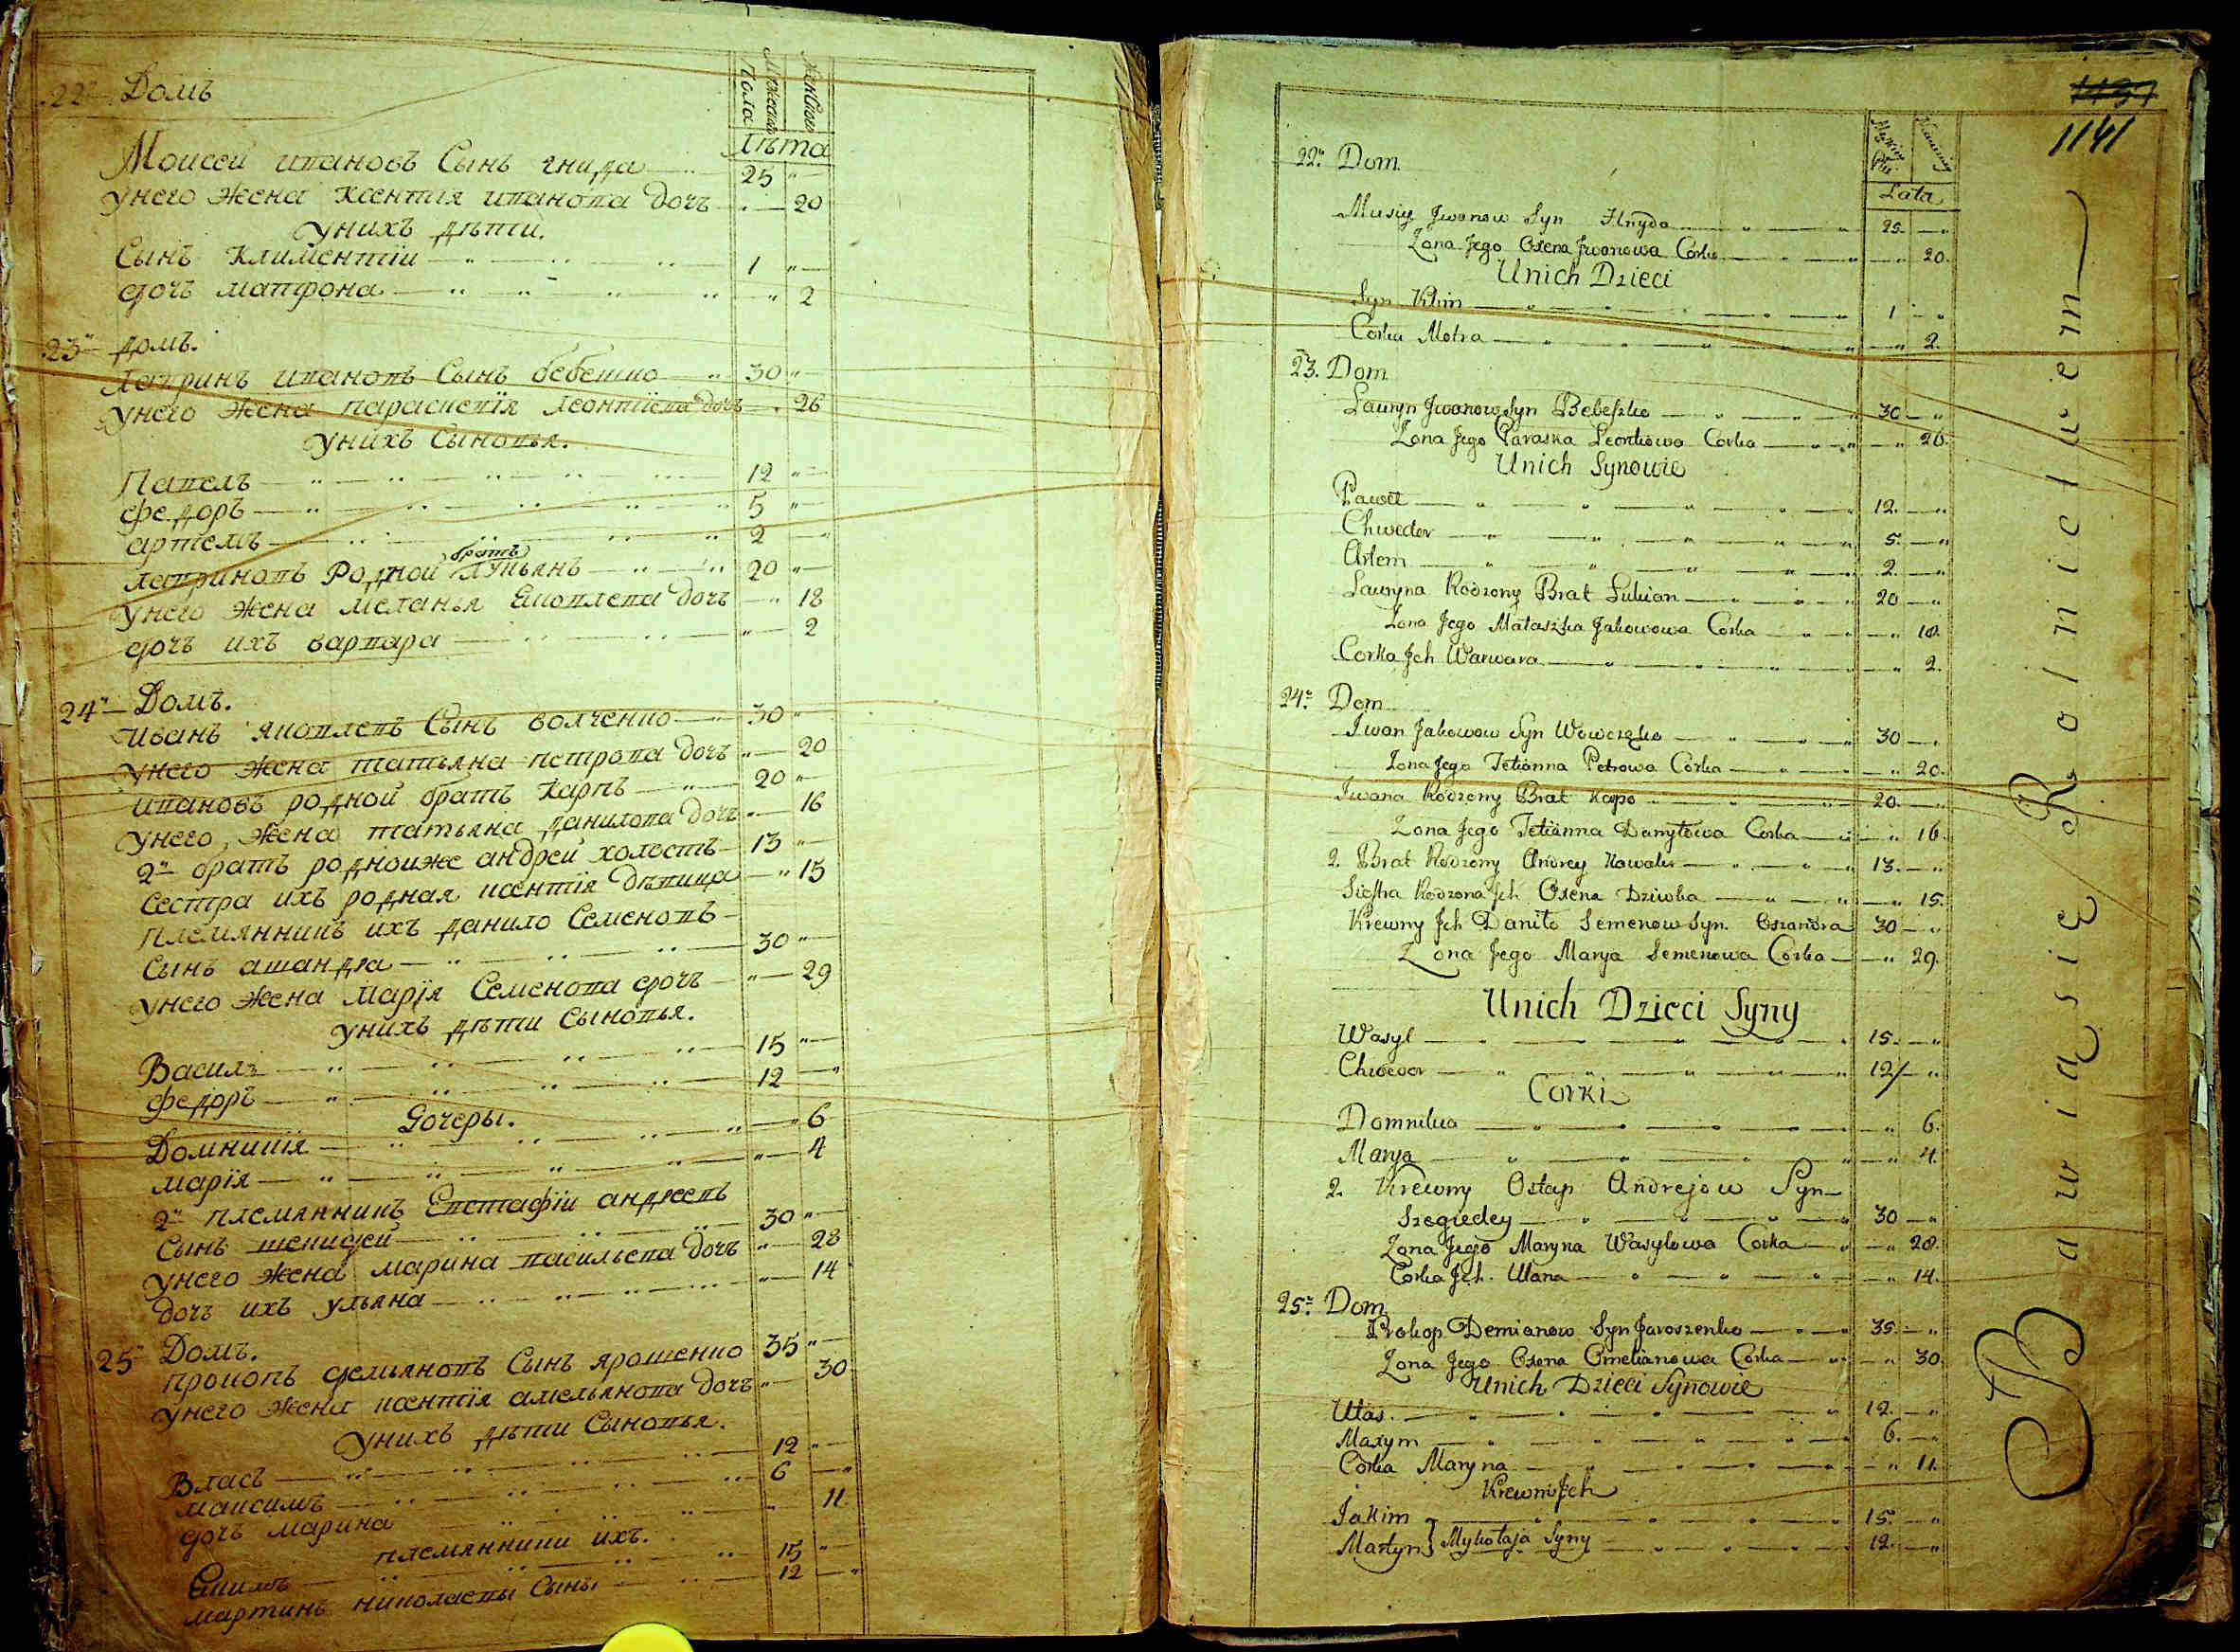 Пола
Мужеска
Женска
Лѣта
22 Домъ
Моисей ивановъ Сынъ гнида 25 "
унего жена ксентія иванова дочъ " 20
унихъ дѣти.
Сынъ климентіи 1 "
дочъ матфона " 2
23 домъ.
лавринъ ивановъ Сынъ бебешко 30 "
унего жена параскевія леонтіева дочъ " 26
унихъ Сыновья.
Павелъ 12 "
федоръ 5 "
артемъ 2 "
лавриновъ Родной братъ лукьянъ 20 "
унего жена меланья Яковлева дочъ " 18
дочъ ихъ варвара " 2
24 Домъ.
иванъ яковлевъ Сынъ волченко 30 "
унего жена татьяна петрова дочъ " 20
ивановъ родной братъ карпъ 20 "
унего жена татьяна данилова дочъ " 16
2й братъ роднойже андрей холостъ 13 "
сестра ихъ родная ксентія дѣвица " 15
племянникъ ихъ данило Семеновъ
Сынъ ашандра 30 "
унего жена Марія Семенова дочъ " 29
унихъ дѣти Сыновья.
Василъ 15 "
федоръ 12 "
Дочеры.
Домникія " 6
марія " 4
2й племянникъ Евстафіи андреевъ
Сынъ шенидей 30 "
унего жена марина васильева дочъ " 28
дочъ ихъ ульяна " 14
25 Домъ.
прокопъ демьяновъ Сынъ ярошенко 35 "
унего жена ксентія амельянова дочъ " 30
унихъ дѣти Сыновья.
Власъ 12 "
максимъ 6 "
дочъ марина " 11
племянники ихъ.
Екимъ 15 "
мартинъ николаевы Сыны 12 "
1141
Lata
22. Dom
Musiy Iwonow Syn Hnyda 25. "
Zona Jego Oxena Iwonowa Corka " 20.
Unich Dzieci
Syn Klim 1 "
Corka Motra " 2.
23. Dom
Lauryn Iwonow Syn Bebeszko 30 "
Zona Jego Paraska Leonkowa Corka " 26.
Unich Synowie
Paweł 12. "
Chwedor 5. "
Artem 2. "
Lauryna Rodzony Brat Lukian 20 "
Zona Jego Małaszka Jakowowa Corka " 18.
Corka Jch Warwara " 2.
24. Dom
Iwon Jakowow Syn Wowczko 30 "
Zona Jego Tetianna Petrowa Corka " 20.
Iwana Rodzony Brat Karpo 20. "
Zona Jego Tetianna Danyłowa Corka " 16.
2. Brat Rodzony Andrey Kawaler 13. "
Siostra Rodzona Jch Oxena Dziwka " 15.
Krewny Jch Daniło Semenow Syn Oszandra 30 "
Zona Jego Marya Semenowa Corka " 29.
Unich Dzieci Syny
Wasyl 15. "
Chwedor 12 "
Corki
Domnika " 6.
Marya " 4.
2. Krewny Ostap Andrejow Syn
Szegiedey 30 "
Zona Jego Maryna Wasylowa Corka " 28.
Corka Jch. Ulana " 14.
25. Dom
Prokop Demianow Syn Jaroszenko 35. "
Zona Jego Oxena Omelianowa Corka " 30.
Unich Dzieci Synowie
Ułas. 12. "
Maxym 6. "
Corka Maryna " 11.
Krewni Jch
Jakim 15. "
Martyn } Mykołaja Syny 12. "
Bawią się Rolnictwem